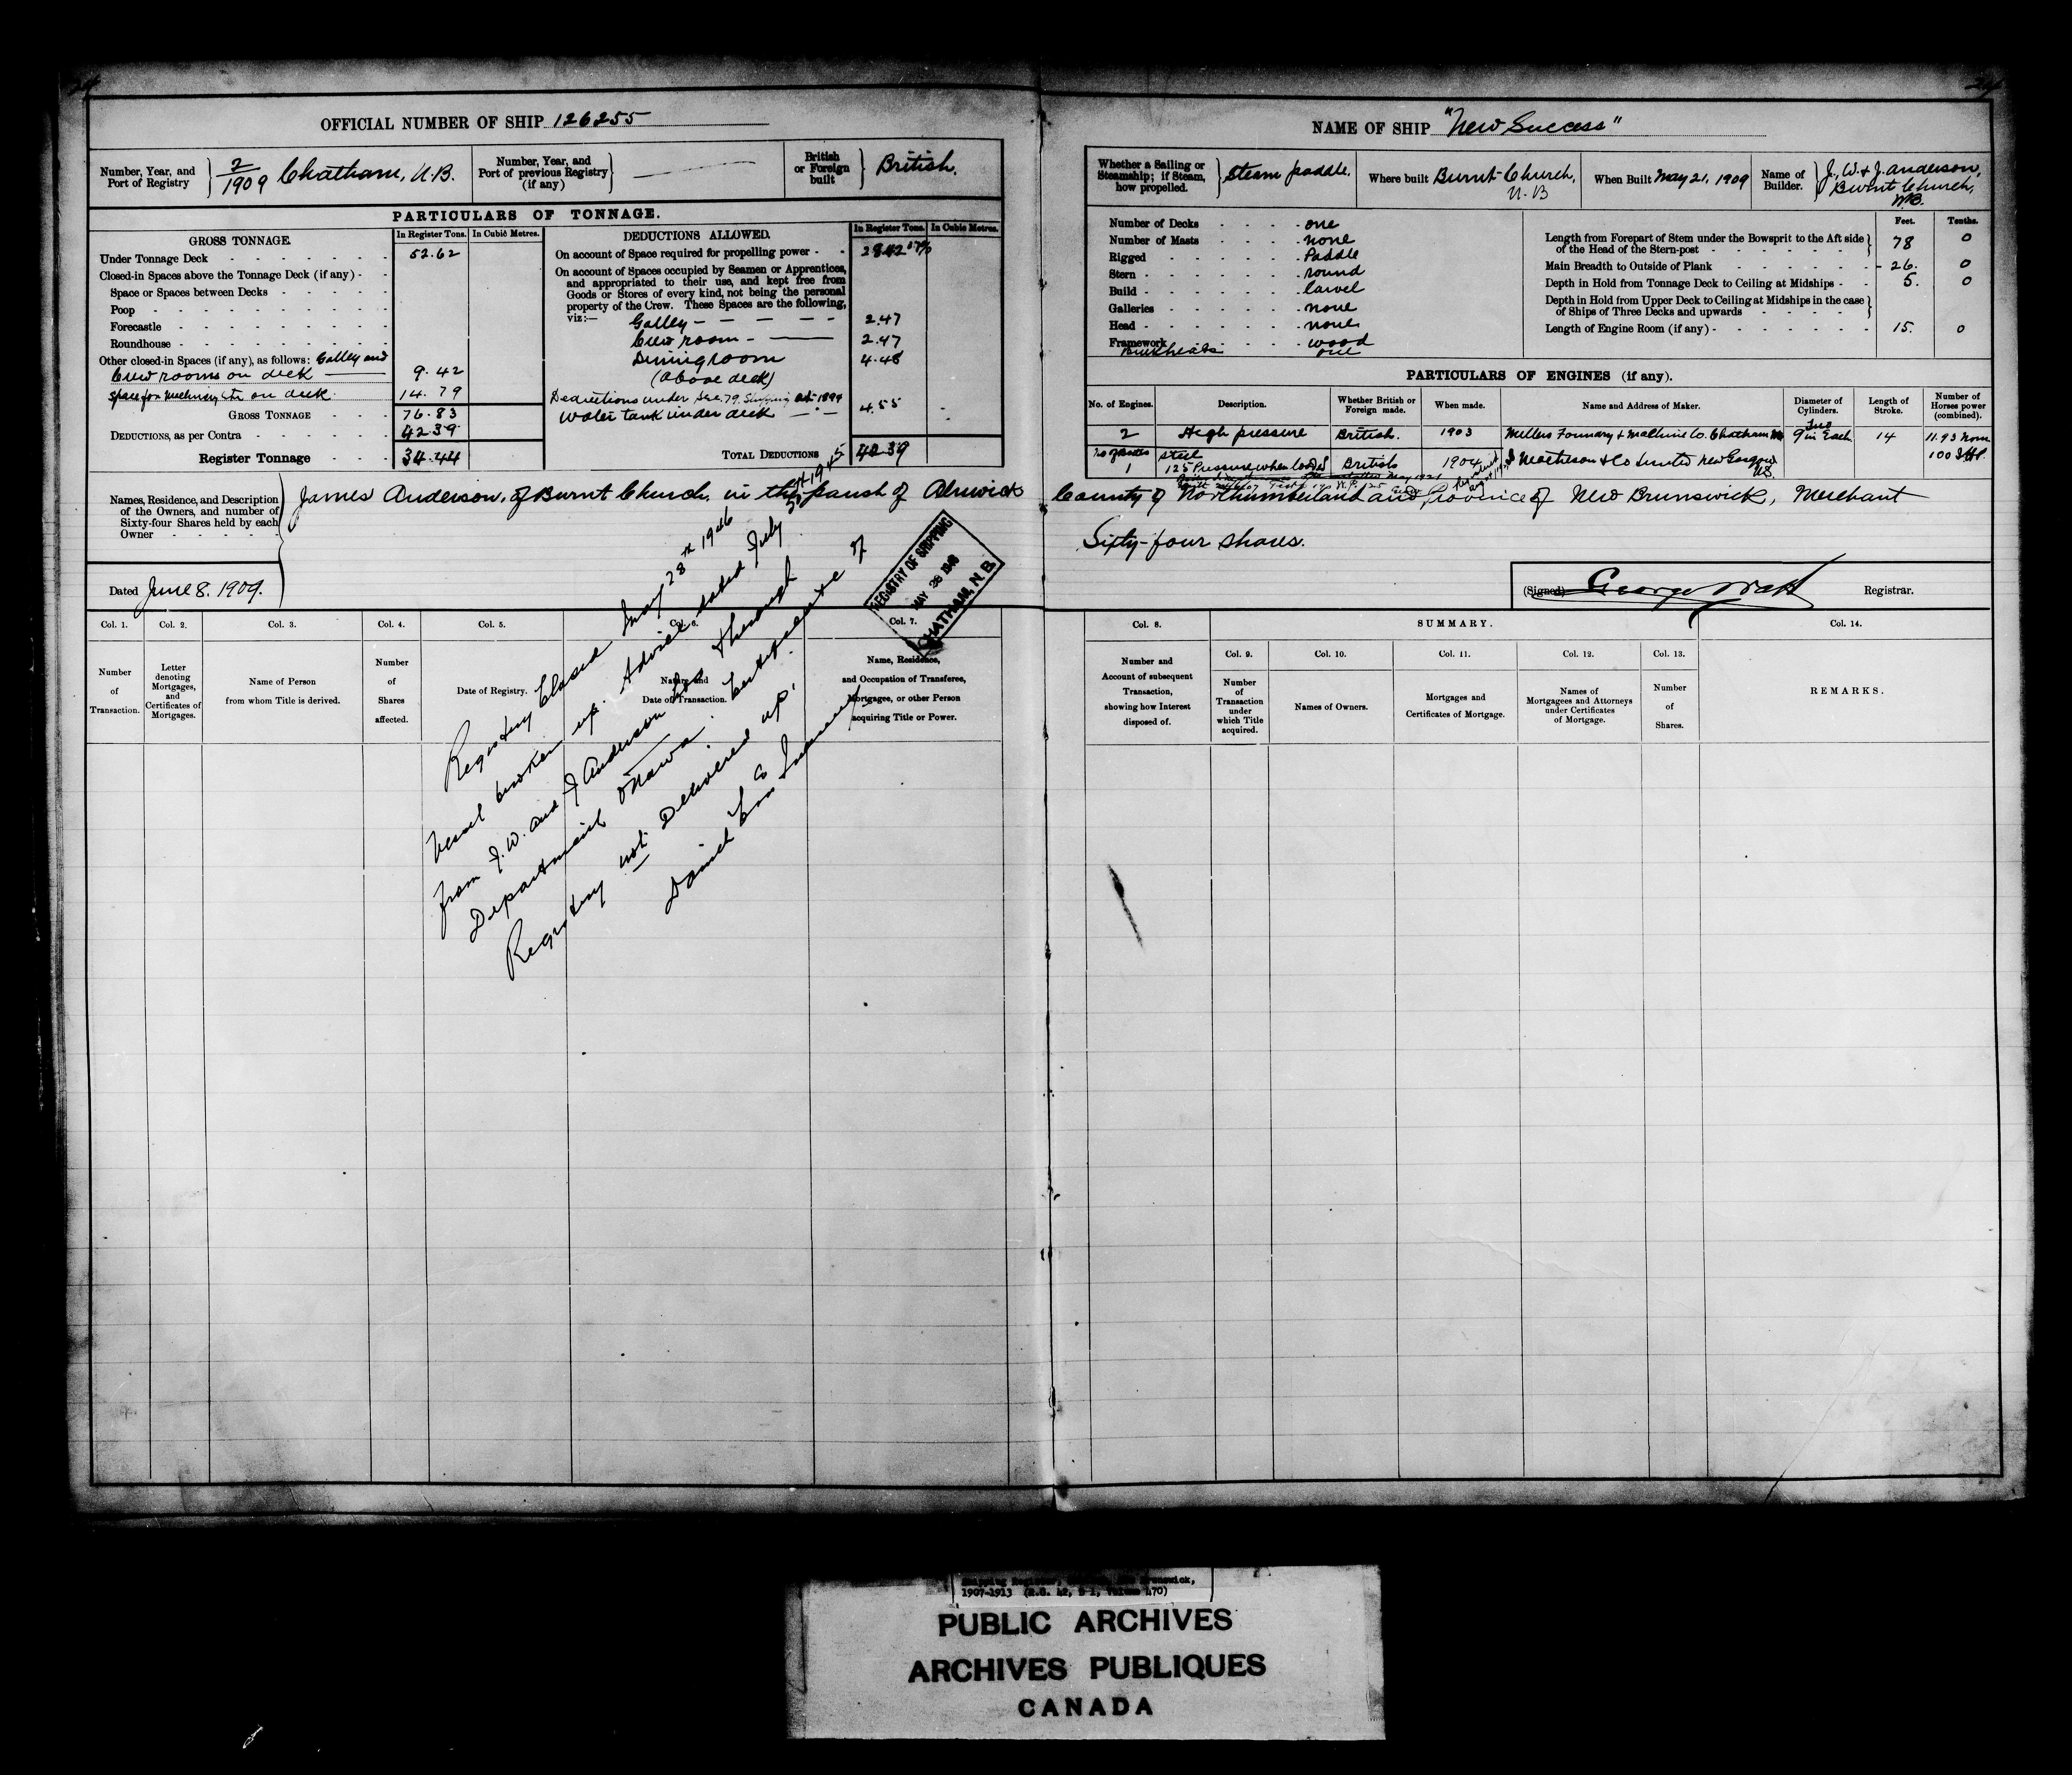 24
24
OFFICIAL NUMBER OF SHIP 126255
Number, Year, and Port of Registry 2/1909 Chatham, N.B.
Number, Year, and Port of previous Registry (if any)
British or Foreign built British.
PARTICULARS OF TONNAGE.
GROSS TONNAGE. In Register Tons. In Cubic Metres.
Under Tonnage Deck 52.62
Closed-in Spaces above the Tonnage Deck (if any)
Space or Spaces between Decks
Poop
Forecastle
Roundhouse
Other closed-in Spaces (if any), as follows: Galley and
Crew rooms on deck 9.42
Space for Machinery on deck 14.79
GROSS TONNAGE 76.83
DEDUCTIONS, as per Contra 42.39
Register Tonnage 34.44
DEDUCTIONS ALLOWED. In Register Tons. In Cubic Metres.
On account of Space required for propelling power 28.42
On account of Spaces occupied by Seamen or Apprentices,
and appropriated to their use, and kept free from
Goods or Stores of every kind, not being the personal
property of the Crew. These Spaces are the following,
viz:—
Galley 2.47
Crew room 2.47
Diningroom 4.48
(above deck)
Deductions under Sec. 79. Shipping Act 1894
Water tank under deck 4.55
TOTAL DEDUCTIONS 42.39
NAME OF SHIP "New Success"
Whether a Sailing or Steamship; if Steam, how propelled. Steam paddle.
Where built Burnt Church, N.B
When Built May 21, 1909
Name of Builder. J. W. & J. Anderson, Burnt Church, N.B.
Number of Decks one
Number of Masts none
Rigged Paddle
Stern round
Build carvel
Galleries none
Head none
Framework wood
Bulkheads one
Feet. Tenths.
Length from Forepart of Stem under the Bowsprit to the Aft side of the Head of the Stern-post 78 0
Main Breadth to Outside of Plank 26. 0
Depth in Hold from Tonnage Deck to Ceiling at Midships 5. 0
Depth in Hold from Upper Deck to Ceiling at Midships in the case of Ships of Three Decks and upwards
Length of Engine Room (if any) 15. 0
PARTICULARS OF ENGINES (if any).
No. of Engines. Description. Whether British or Foreign made. When made. Name and Address of Maker. Diameter of Cylinders. Length of Stroke. Number of Horses power (combined).
2 High pressure British. 1903 Millers Foundry & Machine Co. Chatham Two 9 in Each 14 11.93 Nom
100 I.H.P.
No of Boilers Steel
1 125 Pressure when loaded British 1904 I Matheson & Co Limited New Glasgow N.S.
Names, Residence, and Description of the Owners, and number of Sixty-four Shares held by each Owner
James Anderson, of Burnt Church, in the parish of Alnwick County of Northumberland and Province of New Brunswick, Merchant
Sixty-four shares.
Dated June 8. 1909.
(Signed) George Watt Registrar.
REGISTRY OF SHIPPING
MAY 28 1946
CHATHAM, N.B.
Registry Closed May 28th 1946
Vessel broken up. Advice dated July 3rd 1945
from J. W. and J Anderson through
Department Ottawa. Certificate of
Registry not Delivered up.
Col. 1. Number of Transaction.
Col. 2. Letter denoting Mortgages, and Certificates of Mortgages.
Col. 3. Name of Person from whom Title is derived.
Col. 4. Number of Shares affected.
Col. 5. Date of Registry.
Col. 6. Nature and Date of Transaction.
Col. 7. Name, Residence, and Occupation of Transferee, Mortgagee, or other Person acquiring Title or Power.
Col. 8. Number and Account of subsequent Transaction, showing how Interest disposed of.
SUMMARY.
Col. 9. Number of Transaction under which Title acquired.
Col. 10. Names of Owners.
Col. 11. Mortgages and Certificates of Mortgage.
Col. 12. Names of Mortgagees and Attorneys under Certificates of Mortgage.
Col. 13. Number of Shares.
Col. 14. REMARKS.
1907-1913 (R.G. 42, E-1, Volume 470)
PUBLIC ARCHIVES
ARCHIVES PUBLIQUES
CANADA